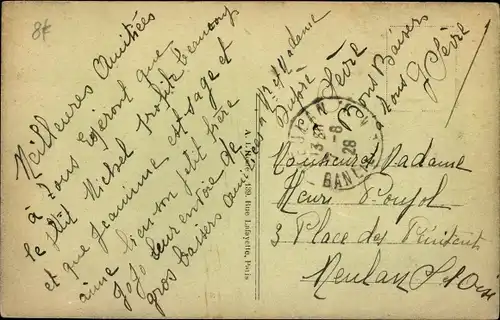 8f
Meilleures Amitiées
à tous espéront que
le ptit Michel profite beaucoup
et que Jeaninne est sage et
aime bien son petit frère
Jojo leur envoie de
gros baisers
Amitiées à Mr et Madame
Bons Baisers
à tous
A. L. 139, Rue Lafayette, Paris
13
-8
28
Monsieur Madame
Henri Poujol
3 Place des Pénitents
Meulan S et Oise